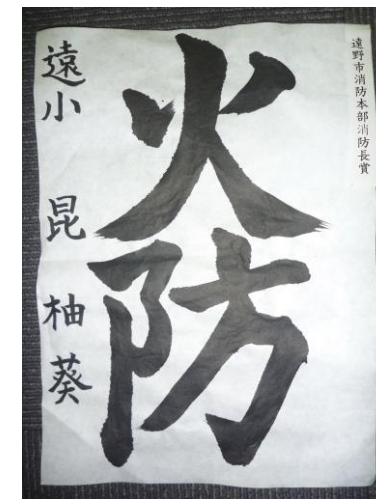 遠野市消防本部消防長賞
火防
遠小 昆 柚葵